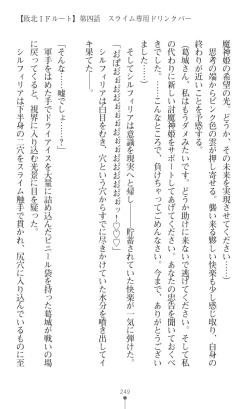 【敗北IFルート】第四話　スライム専用ドリンクバー
魔神姫の希望の光、どうか、その未来を実現させてください――）
思考の端からピンク色の雲が押し寄せる。襲い来る影しい快楽も少し感じ取り、自身の
終わりが近いことを予感する。
（葛城さん、私はもうダメみたいです。どうか助けに来ないでください。そして、私
の代わりに新しい討魔神姫をサポートしてあげてください。あなたの忠告を聞いておけば
よかった……こんなところで、負けちゃってごめんなさい。今まで、ありがとうござい
ました……）
そしてシルフィリアは意識を現実へと帰し――貯蓄されていた快楽が一気に弾けた。
シルフィリアは白目をむき、穴という穴からすでに欠きかけていた水分を噴き出してイ
キ果てた――。
「そんな……嘘でしょ……？」
軍手をはめた手でドライアイスを大量に詰め込んだビニール袋を持った葛城が戦いの場
に戻ってくると、視界に入り込む光景に目を疑った。
シルフィリアは下半身の二穴をスライム触手で貫かれ、尻穴に入り込んでいるものに至
249